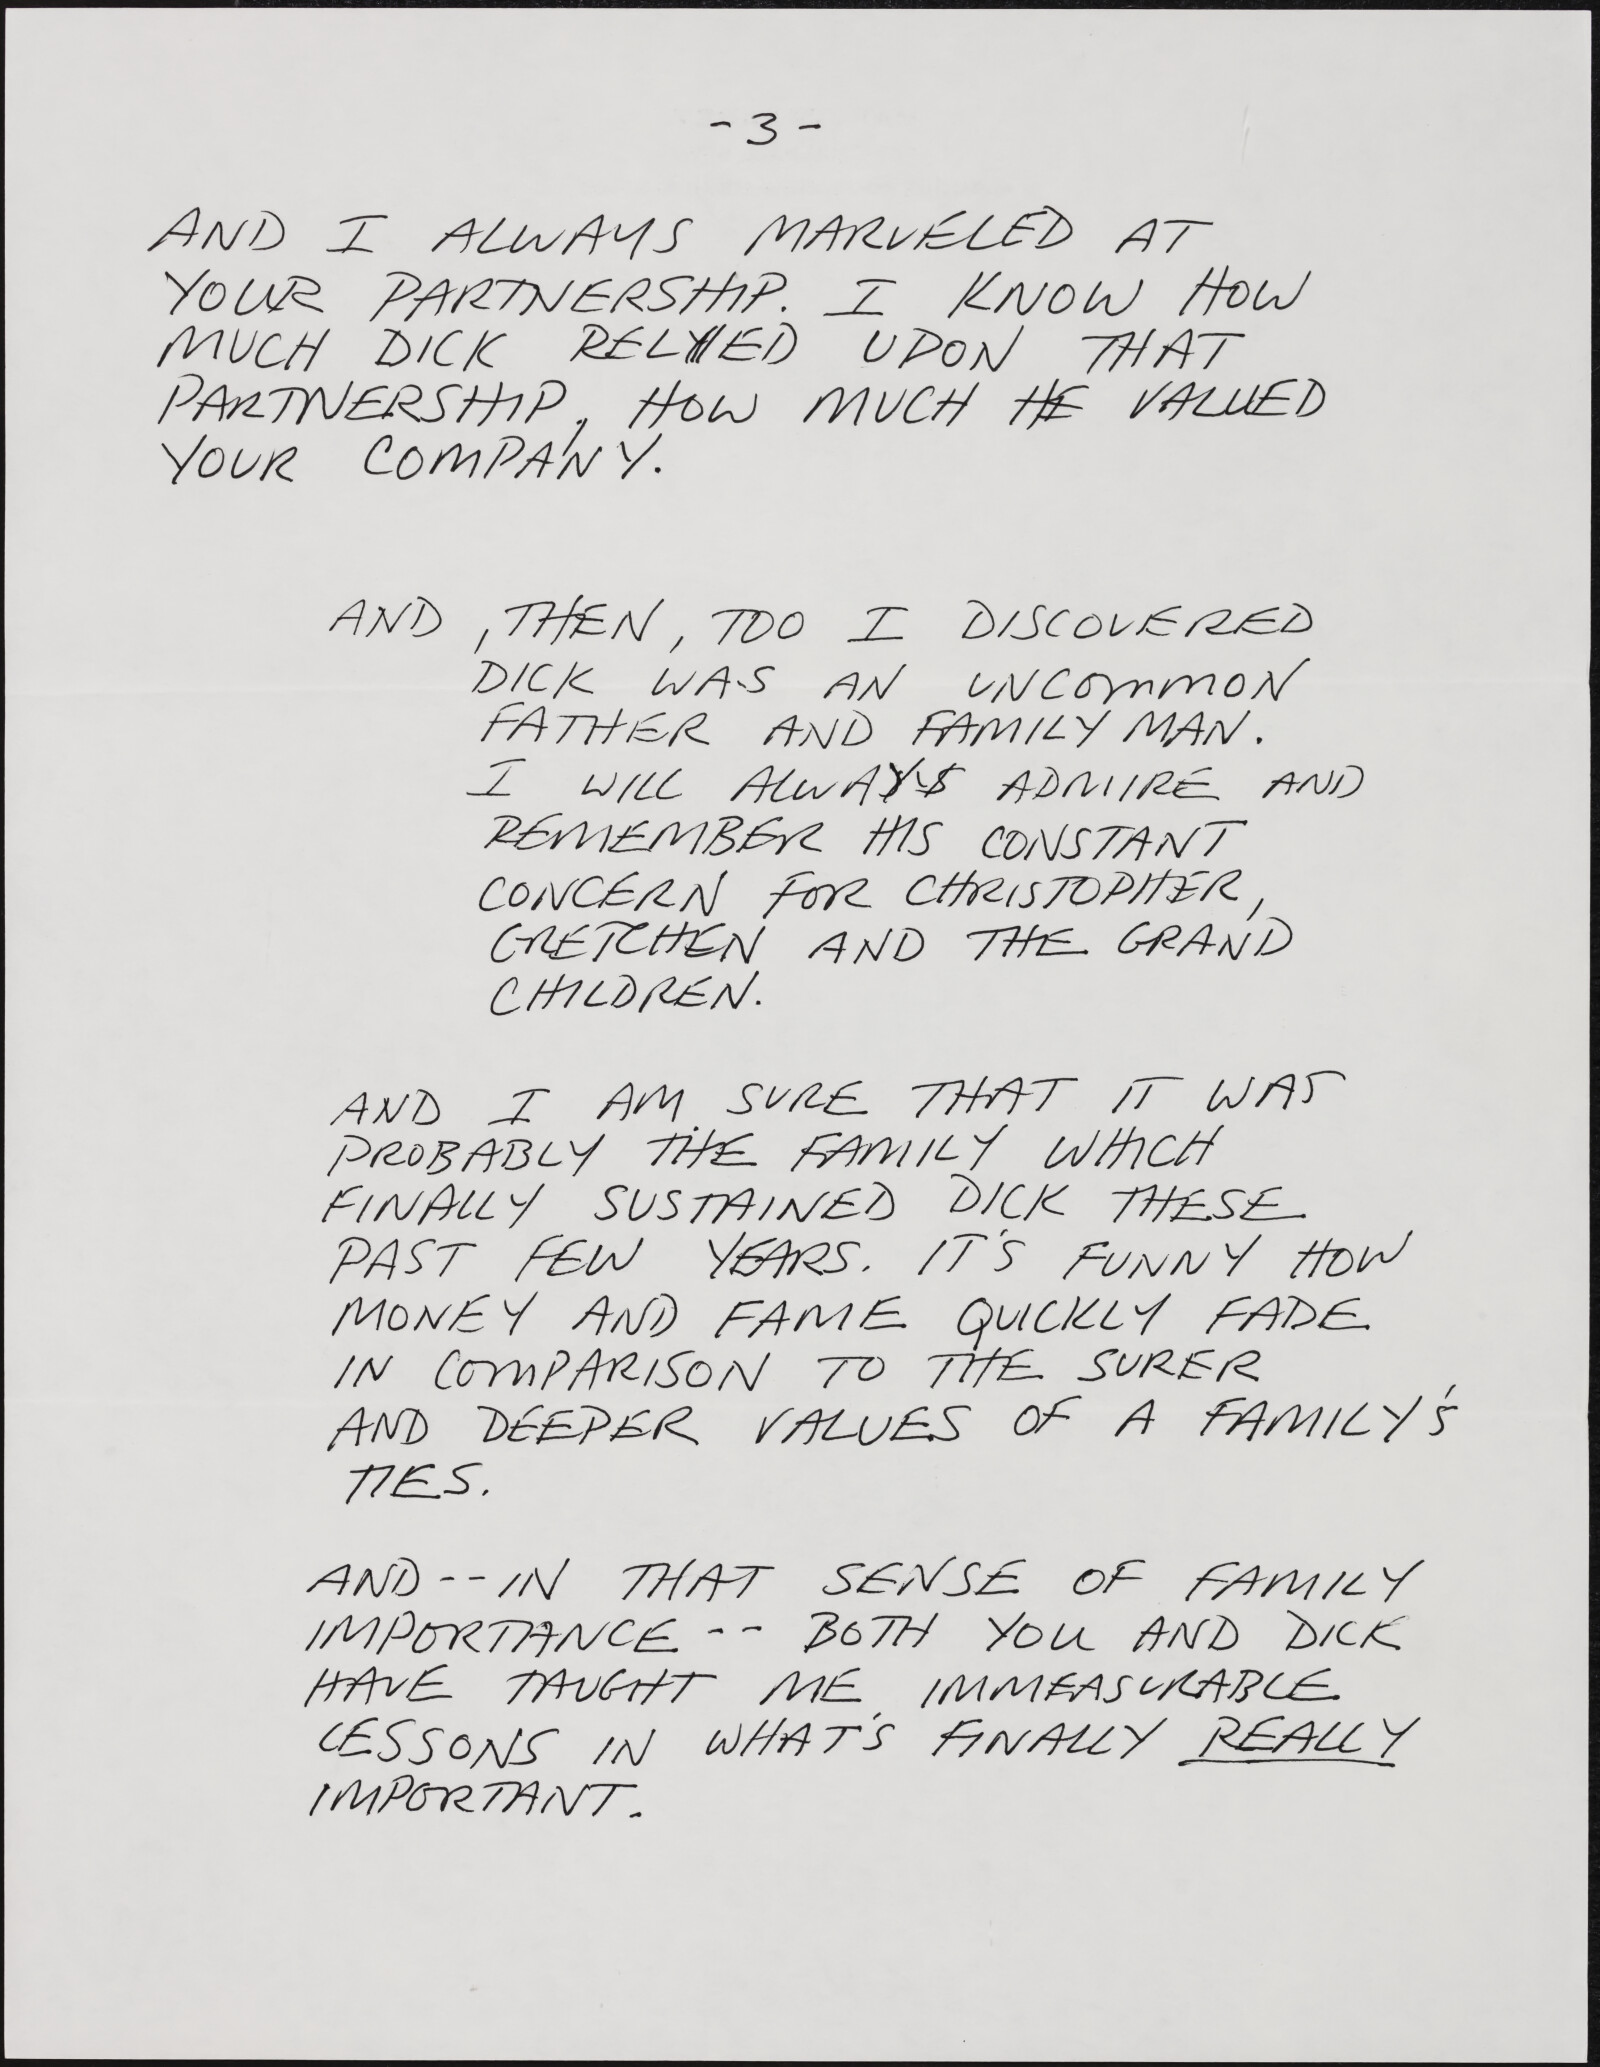 -3-
AND I ALWAYS MARVELED AT
YOUR PARTNERSHIP. I KNOW HOW
MUCH DICK RELIED UPON THAT
PARTNERSHIP, HOW MUCH HE VALUED
YOUR COMPANY.
AND, THEN, TOO I DISCOVERED
DICK WAS AN UNCOMMON
FATHER AND FAMILY MAN.
I WILL ALWAYS ADMIRE AND
REMEMBER HIS CONSTANT
CONCERN FOR CHRISTOPHER,
GRETCHEN AND THE GRAND
CHILDREN.
AND I AM SURE THAT IT WAS
PROBABLY THE FAMILY WHICH
FINALLY SUSTAINED DICK THESE
PAST FEW YEARS. IT'S FUNNY HOW
MONEY AND FAME QUICKLY FADE
IN COMPARISON TO THE SURER
AND DEEPER VALUES OF A FAMILY'S
TIES.
AND--IN THAT SENSE OF FAMILY
IMPORTANCE-- BOTH YOU AND DICK
HAVE TAUGHT ME IMMEASURABLE
LESSONS IN WHAT'S FINALLY REALLY
IMPORTANT.